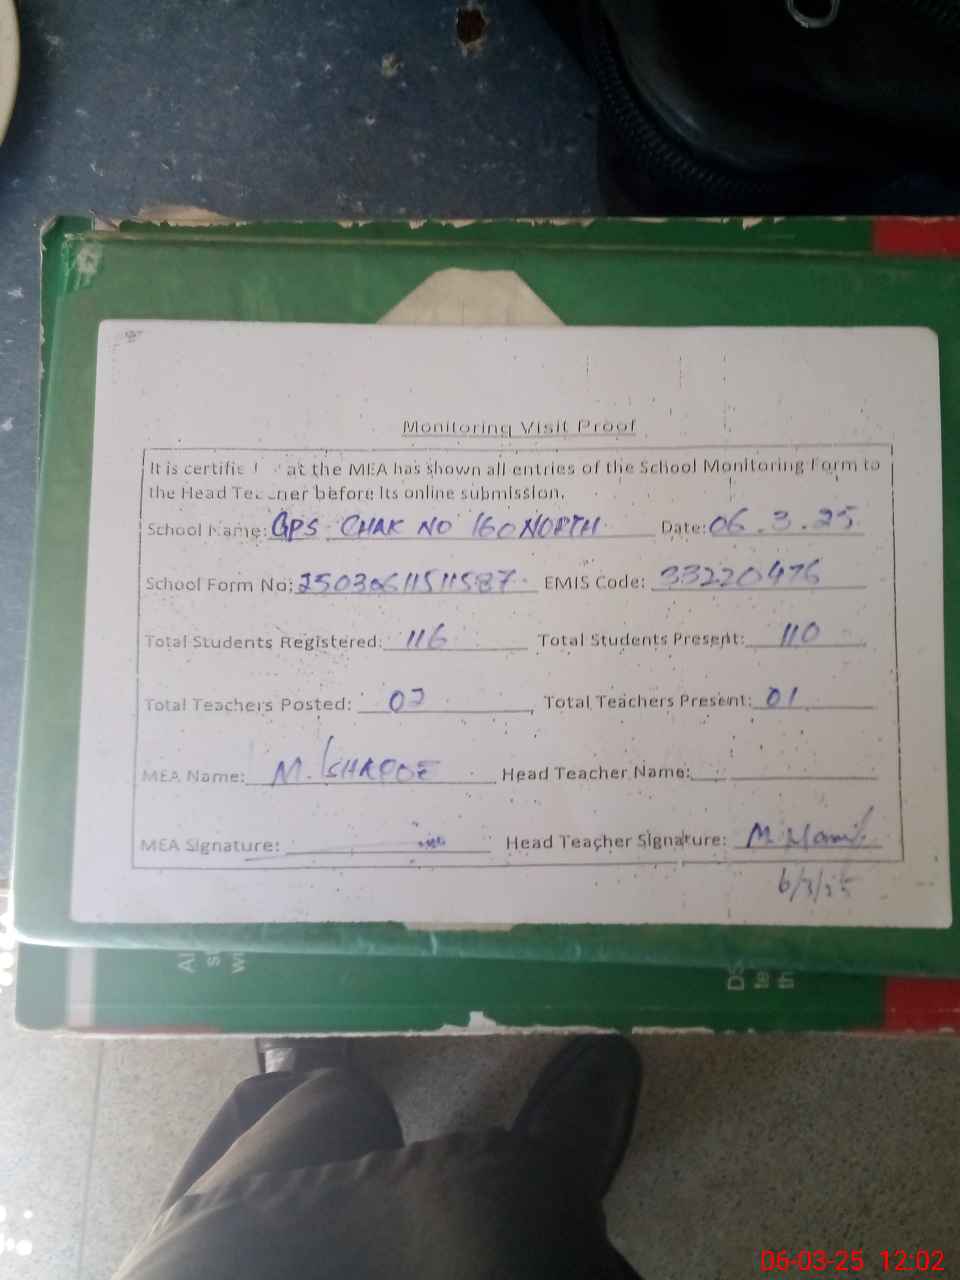 Monitoring Visit Proof
It is certifie at the MEA has shown all entries of the School Monitoring Form to
the Head Teacher before its online submission.
School Name: GPS CHAK NO 160 NORTH Date: 06.3.25
School Form No: 250306115111587 EMIS Code: 33220476
Total Students Registered: 116 Total Students Present: 110
Total Teachers Posted: 02 Total Teachers Present: 01
MEA Name: M. Head Teacher Name:
MEA Signature: Head Teacher Signature: M.
6/3/25
06-03-25 12:02